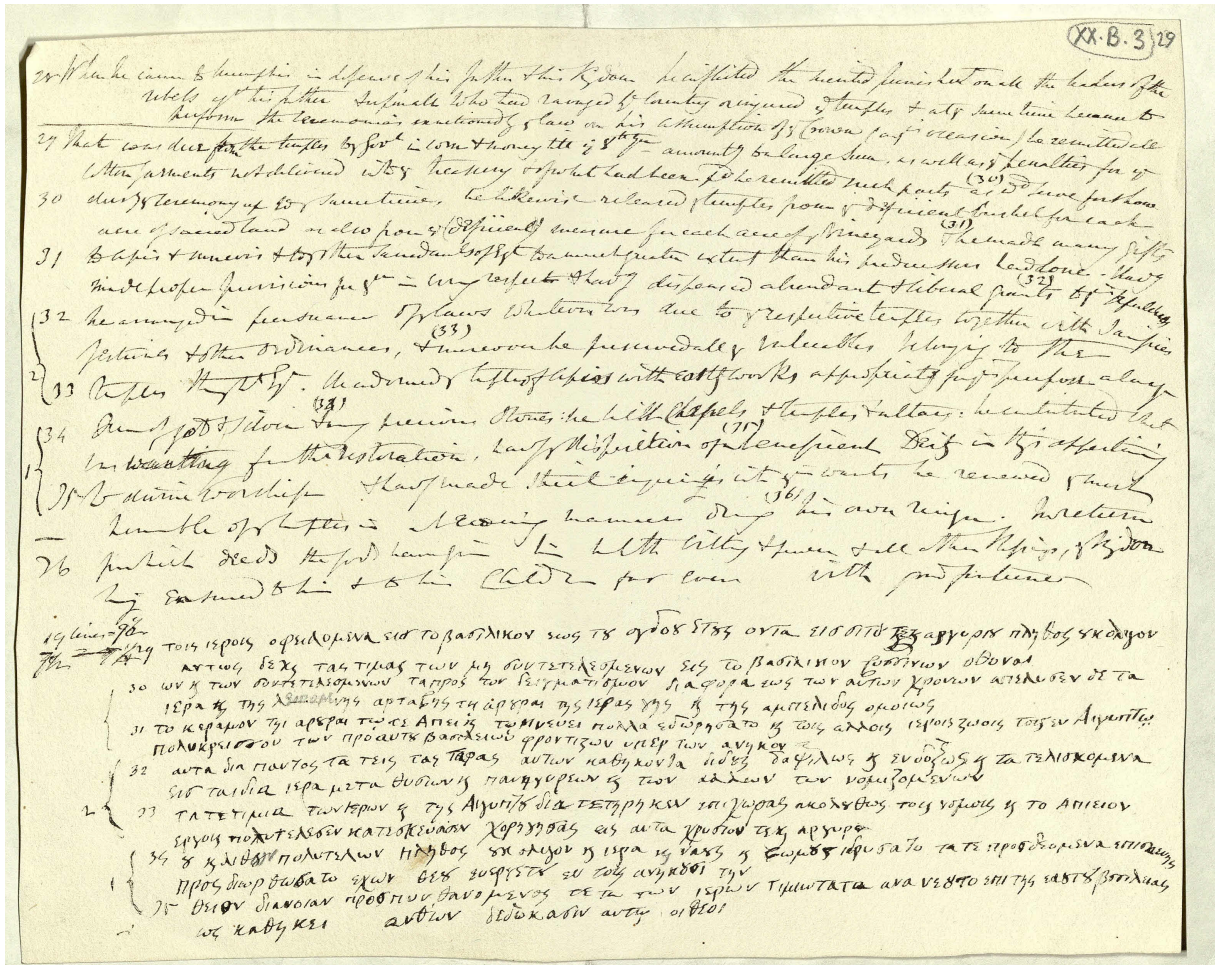 XX·B·3 29
28 When he came to Memphis in defence of his father & his Kingdom he inflicted the merited punishment on all the leaders of the
rebels agst his father Insomuch who had ravaged ye Country or injured ye temples & at ye same time became to
perform the Ceremonies sanctioned by law on his assumption of ye Crown (on ye occasion) he remitted all
29 that was due from the temples to Govt in corn & money till ye 8th yr amountg to a large sum, as well as ye penalties for ye
Cotton garments not delivered into ye treasury & of what had been pd he remitted such parts (30) as wd serve for those
30 dutys & ceremony up to ye same time. he likewise released ye temples from ye deficient bushel for each
acre of sacred land as also from ye (deficient) measure for each acre of ye Vineyards (31) & he made many gifts
31 to Apis & Mnevis & to ye other Sacred animals of Egt to a much greater extent than his predecessors had done. Havg
made proper provisions for ym in every respect & havg dispensed abundant & liberal grants (32) to ye sepulchres
32 he arranged in pursuance of ye laws whatever was due to ye respective temples together with Sacrifices
festivals & other Ordinances, (33) & moreover he preserved all ye valuables belongg to the
33 temples thro'out Egt. he adorned ye temple of Apis with costly works appropriatg for ye purpose a large
Sum of gold & silver (34) & many precious stones: he built Chapels & temples & altars: he instituted that
34 was wanting for the restoration, havg ye disposition of a beneficent (35) Deity in thgs appertaining
35 to divine worship & havg made strict inquiries into ye wants he renewed ye most
honorable of ye temples in a becoming manner durg (36) his own reign. In return
36 for which deeds the gods have given him health victory & power & all other blessings, ye Kingdom
being ensured to him & to his Children for ever with good fortune
19 lines = 
29 τοις ιεροις οφειλομενα εις το βασιλικον εως τȣ ογδοȣ ετȣς οντα εις σιτȣ τε κ αργυριȣ πληθος ȣκ ολιγον
αυτως δε κ τας τιμας των μη συντετελεσμενων εις το βασιλικον βυσσινων οθονιων
30 ων κ των συντετελεσμενων τα προς τον δειγματισμον διαφορα εως των αυτων χρονων απελυσεν δε τα
ιερα κ της αρταβης τη αρȣρα της ιερας γης κ της αμπελιδος ομοιως
31 το κεραμιον τηι αρȣραι τῳ τε Απει κ τῳ Μνευει πολλα εδωρησατο κ τοις αλλοις ιεροις ζωοις τοις εν Αιγυπτῳ
πολυ κρεισσον των προ αυτȣ βασιλειων φροντιζων υπερ των ανηκον
32 αυτα δια παντος τα τ εις τας ταφας αυτων καθηκοντα διδȣς δαψιλως κ ενδοξως κ τα τελισκομενα
εις τα ιδια ιερα μετα θυσιων κ πανηγυρεων κ των αλλων των νομιζομενων
33 τα τε τιμια των ιερων κ της Αιγυπτȣ διατετηρηκεν επι χωρας ακολȣθως τοις νομοις κ το Απιειον
εργοις πολυτελεσεν κατεσκευασεν χορηγησας εις αυτο χρυσιȣ τε κ αργυριȣ
34 ȣ κ λιθων πολυτελων πληθος ȣκ ολιγον κ ιερα κ ναȣς κ βωμȣς ιδρυσατο τα τε προσδεομενα επισκευης
προσδιορθωσατο εχων θεȣ ευεργετȣ εν τοις ανηκȣσι την
35 θειον διανοιαν προσπυνθανομενος τε τα των ιερων τιμιωτατα ανανεȣτο επι της εαυτȣ βασιλειας
ως καθηκει ανθων δεδωκασιν αυτῳ οι θεοι